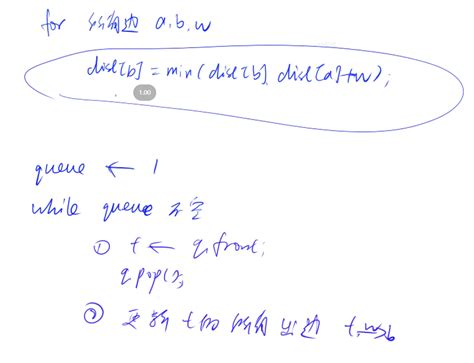 for 所有边 a.b.w
dist[b] = min(dist[b], dist[a]+w);
1.00
queue ← 1
while queue 不空
① t ← q.front;
q.pop();
② 更新 t的所有出边 t →w b